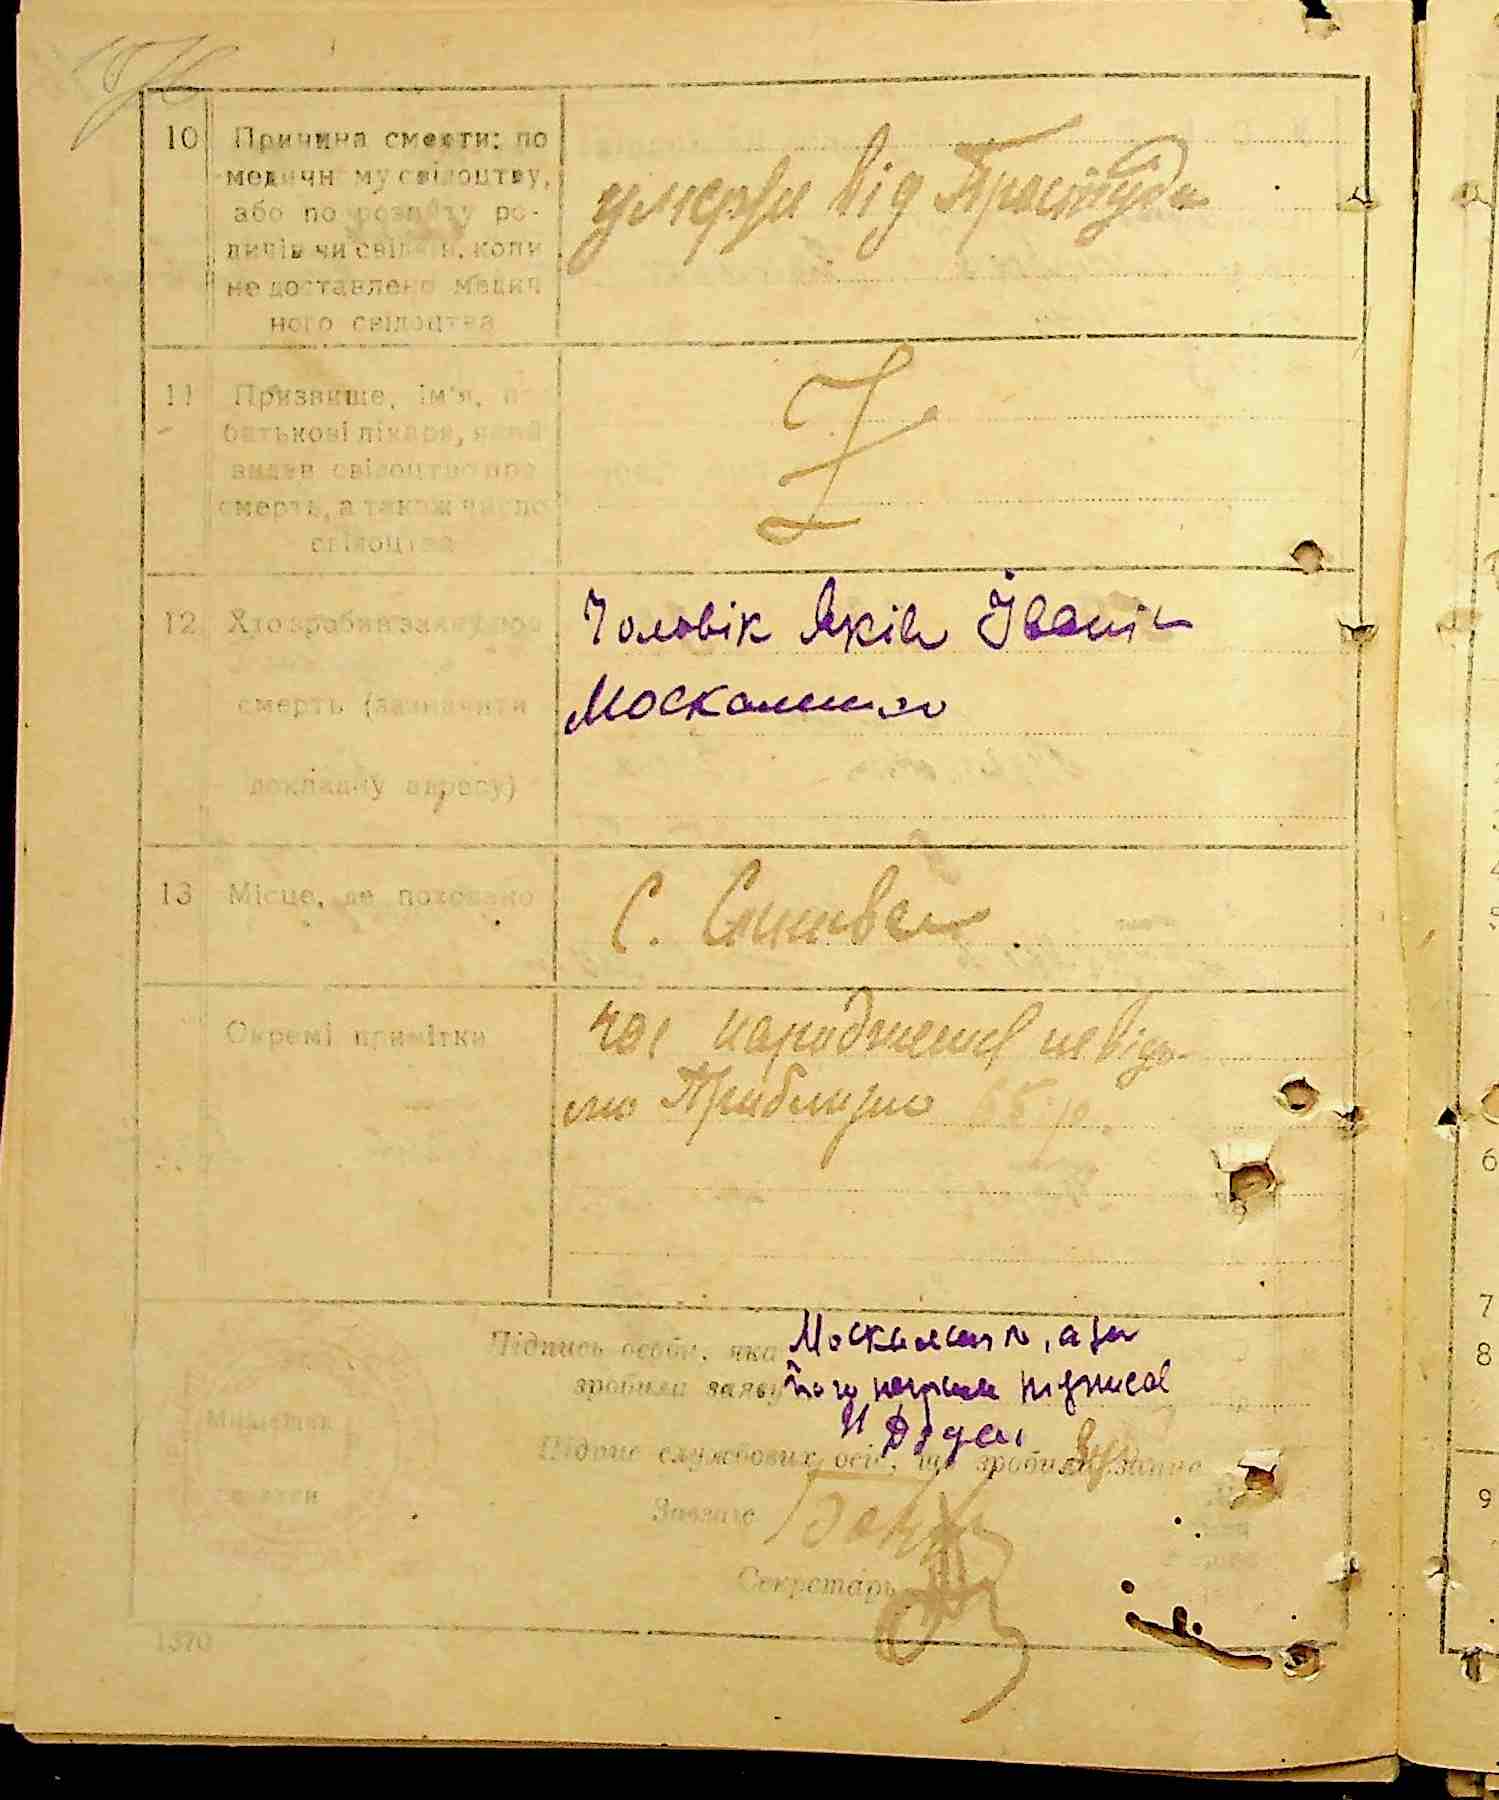 10 Причина смерти: по
медичному свідоцтву,
або по розпиту ро-
дичів чи свідків, коли
не доставлено медич
ного свідоцтва
умерли від Простуди
11 Призвище, ім'я, по
батькові лікаря, який
видав свідоцтво про
смерть, а також число
свідоцтва
12 Хто зробив заяву про
смерть (зазначити
докладну адресу)
Чоловік Яків Іванів
Москаленко
13 Місце, де поховано
с.
Окремі примітки
час народження невідо-
мо Приблизно 66 р.
Підпись особи, яка
зробила заяву
Москаленко, а за
його підписав
Підпис службових осіб, що зробили запис
Завзагс
Секретарь
1370
6
7
8
9